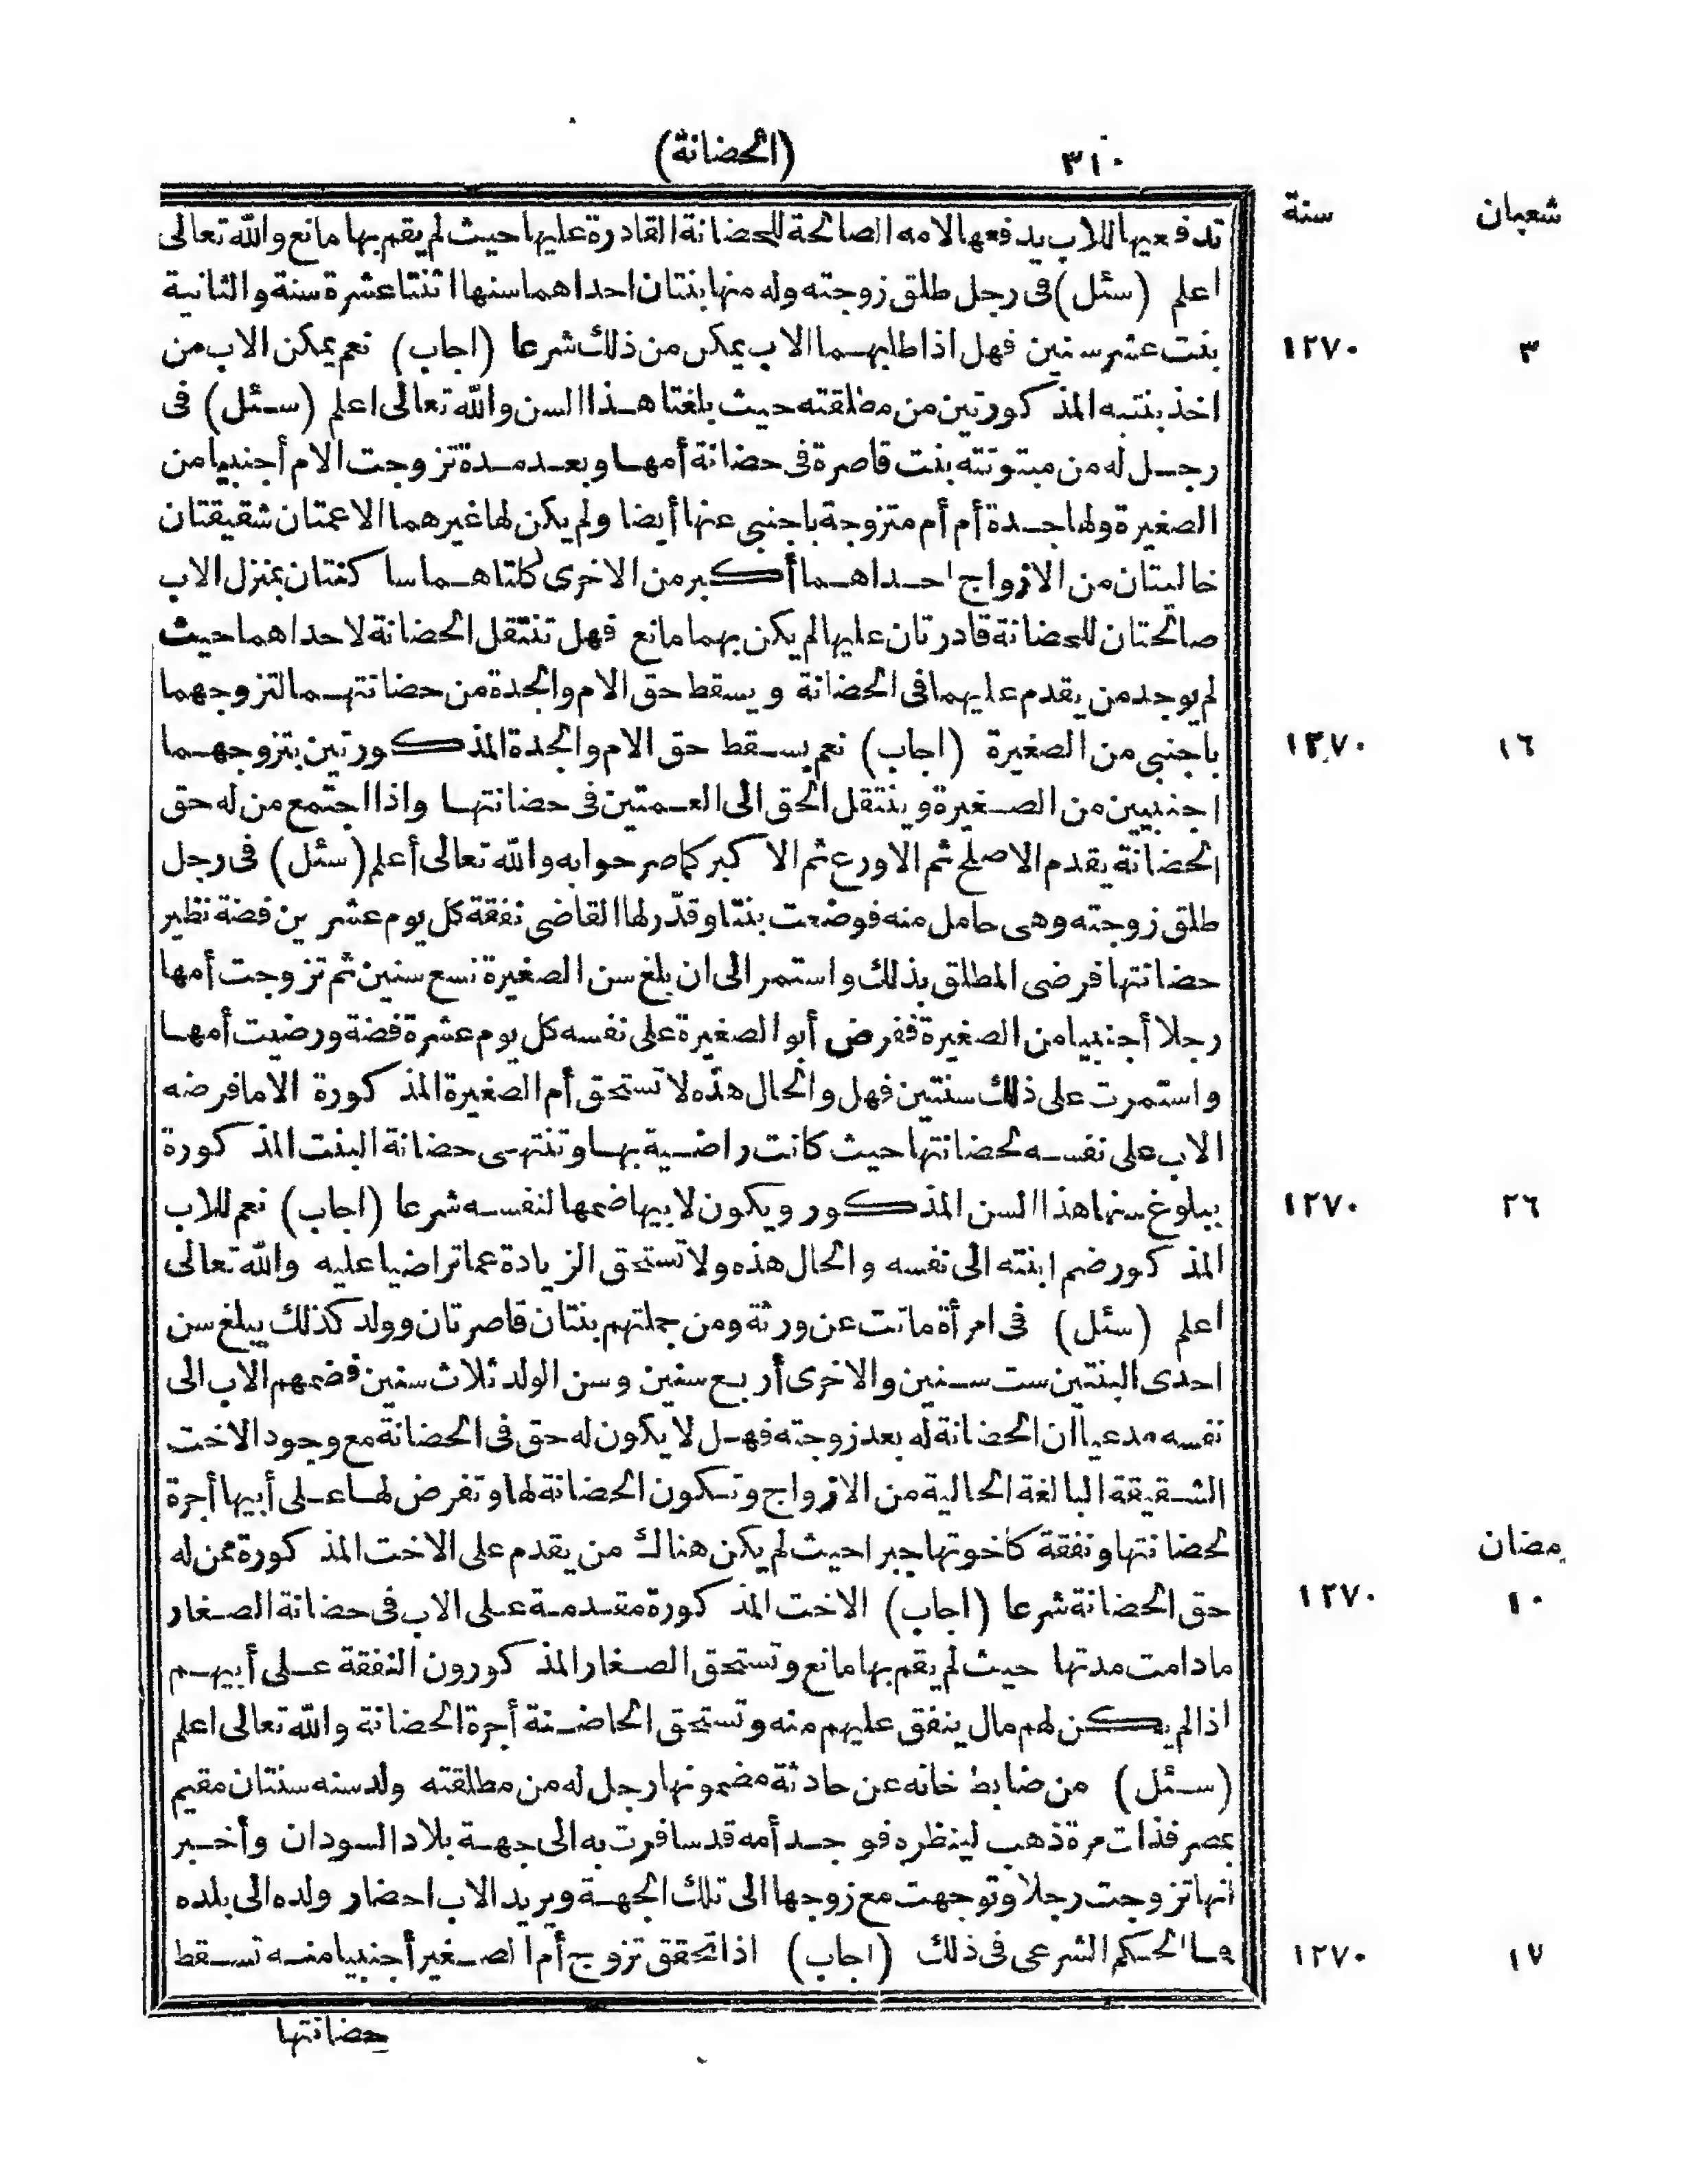 ٣١٠ (الحضانة)
شعبان سنة
تدفعيها للاب يدفعها لامه الصالحة للحضانة القادرة عليها حيث لم يقم بها مانع والله تعالى
اعلم (سئل) فى رجل طلق زوجته وله منها بنتان احداهما سنها اثنتا عشرة سنة والثانية
بنت عشر سنين فهل اذا طلبهما الاب يمكن من ذلك شرعا (اجاب) نعم يمكن الاب من ١٢٧٠ ٣
اخذ بنتيه المذكورتين من مطلقته حيث بلغتا هذا السن والله تعالى اعلم (سئل) فى
رجل له من مبتوتته بنت قاصرة فى حضانة أمها وبعد مدة تزوجت الام أجنبيا من
الصغيرة ولها جدة أم أم متزوجة باجنبى عنها أيضا ولم يكن لها غيرهما الا عمتان شقيقتان
خاليتان من الازواج احداهما أكبر من الاخرى كلتاهما ساكنتان بمنزل الاب
صالحتان للحضانة قادرتان عليها لم يكن بهما مانع فهل تنتقل الحضانة لاحداهما حيث
لم يوجد من يقدم عليهما فى الحضانة ويسقط حق الام والجدة من حضانتهما لتزوجهما
باجنبى من الصغيرة (اجاب) نعم يسقط حق الام والجدة المذكورتين بتزوجهما ١٢٧٠ ١٦
اجنبيين من الصغيرة وينتقل الحق الى العمتين فى حضانتها واذا اجتمع من له حق
الحضانة يقدم الاصلح ثم الاورع ثم الاكبر كما صرحوا به والله تعالى أعلم (سئل) فى رجل
طلق زوجته وهى حامل منه فوضعت بنتا وقدّر لها القاضى نفقة كل يوم عشرين فضة نظير
حضانتها فرضى المطلق بذلك واستمر الى ان بلغ سن الصغيرة تسع سنين ثم تزوجت أمها
رجلا أجنبيا من الصغيرة ففرض أبو الصغيرة على نفسه كل يوم عشرة فضة ورضيت أمها
واستمرت على ذلك سنتين فهل والحال هذه لا تستحق أم الصغيرة المذكورة الا ما فرضه
الاب على نفسه لحضانتها حيث كانت راضية بها وتنتهى حضانة البنت المذكورة
ببلوغ سنها هذا السن المذكور ويكون لابيها ضمها لنفسه شرعا (اجاب) نعم للاب ١٢٧٠ ٢٦
المذكور ضم ابنته الى نفسه والحال هذه ولا تستحق الزيادة عما تراضيا عليه والله تعالى
اعلم (سئل) فى امرأة ماتت عن ورثة ومن جملتهم بنتان قاصرتان وولد كذلك يبلغ سن
احدى البنتين ست سنين والاخرى أربع سنين وسن الولد ثلاث سنين فضمهم الاب الى
نفسه مدعيا ان الحضانة له بعد زوجته فهل لا يكون له حق فى الحضانة مع وجود الاخت
الشقيقة البالغة الخالية من الازواج وتكون الحضانة لها وتفرض لها على أبيها أجرة
لحضانتها ونفقة كاخوتها جبرا حيث لم يكن هناك من يقدم على الاخت المذكورة ممن له رمضان
حق الحضانة شرعا (اجاب) الاخت المذكورة مقدمة على الاب فى حضانة الصغار ١٢٧٠ ١٠
ما دامت مدتها حيث لم يقم بها مانع وتستحق الصغار المذكورون النفقة على أبيهم
اذا لم يكن لهم مال ينفق عليهم منه وتستحق الحاضنة أجرة الحضانة والله تعالى اعلم
(سئل) من ضابط خانه عن حادثة مضمونها رجل له من مطلقته ولد سنه سنتان مقيم
بمصر فذات مرة ذهب لينظره فوجد أمه قد سافرت به الى جهة بلاد السودان وأخبر
انها تزوجت رجلا وتوجهت مع زوجها الى تلك الجهة ويريد الاب احضار ولده الى بلده
فما الحكم الشرعى فى ذلك (اجاب) اذا تحقق تزوج أم الصغير أجنبيا منه تسقط ١٢٧٠ ١٧
حضانتها